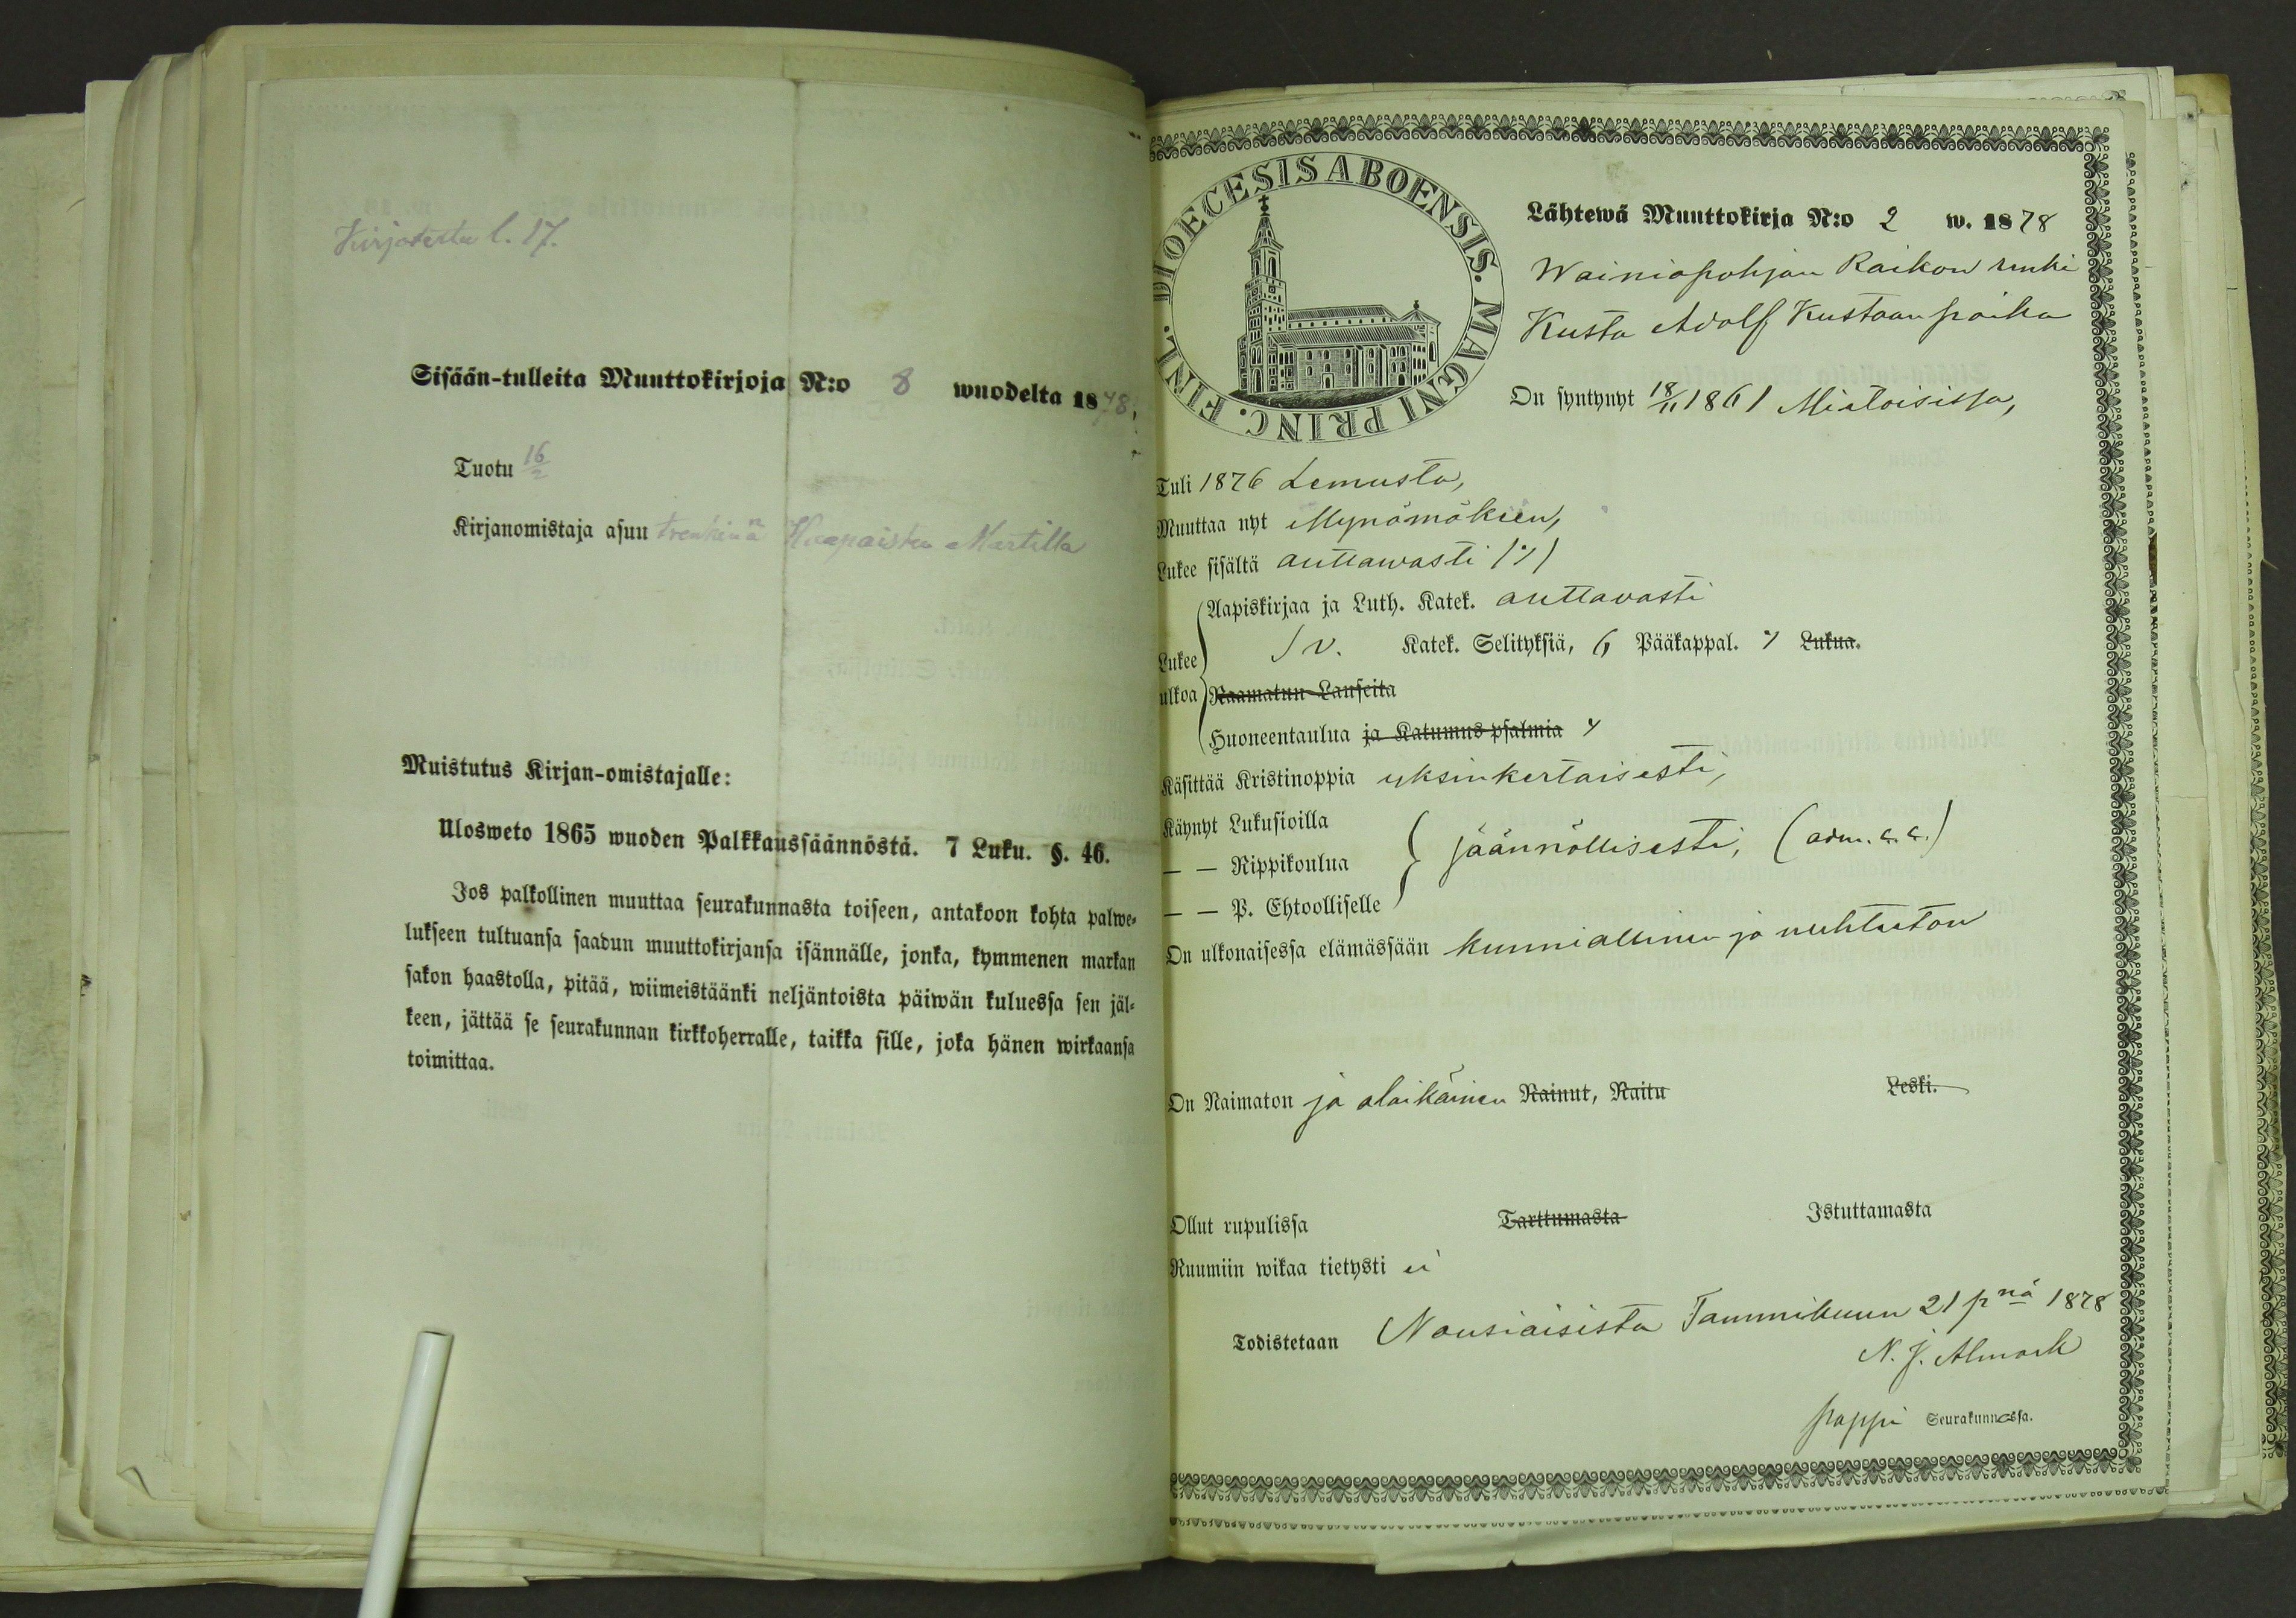 Kirjotettu l. 17.
Sisään-tulleita Muuttokirjoja N:o 8 wuodelta 1878,
Tuotu 16/2
Kirjanomistaja asuu trenkinä Martilla
Muistutus Kirjan-omistajalle:
Ulosweto 1865 wuoden Palkkaussäännöstä. 7 Luku. §. 46.
Jos palkollinen muuttaa seurakunnasta toiseen, antakoon kohta palwe-
lukseen tultuansa saadun muuttokirjansa isännälle, jonka, kymmenen markan
sakon haastolla, pitää, wiimeistäänki neljäntoista päiwän kuluessa sen jäl-
keen, jättää se seurakunnan kirkkoherralle, taikka sille, joka hänen wirkaansa
toimittaa.
DIOECESIS ABOENSIS. MAGNI PRINC. FINL.
Lähtewä Muuttokirja N:o 2 w. 1878
Wainiopohjan Raikon renki
Kusta Adolf Kustaanpoika
On syntynyt 18/11 1861 Mietoisissa,
Tuli 1876 Lemusta,
Muuttaa nyt Mynämäkeen,
Lukee sisältä auttawasti (y)
Lukee ulkoa
Aapiskirjaa ja Luth. Katek. auttavasti
/ v. Katek. Selityksiä, 6 Pääkappal. y Lukua.
Raamatun Lauseita
Huoneentaulua ja Katumus psalmia y
Käsittää Kristinoppia yksinkertaisesti,
Käynyt Lukusioilla
— — Rippikoulua jäännöllisesti, (adm. c. c.)
— — P. Ehtoolliselle
On ulkonaisessa elämässään kunniallinen ja nuhteeton
On Naimaton ja alaikäinen Nainut, Naitu Leski.
Ollut rupulissa Tarttumasta Istuttamasta
Ruumiin wikaa tietysti ei
Todistetaan Nousiaisista Tammikuun 21 pnä 1878
N. J. Almark
pappi Seurakunnassa.